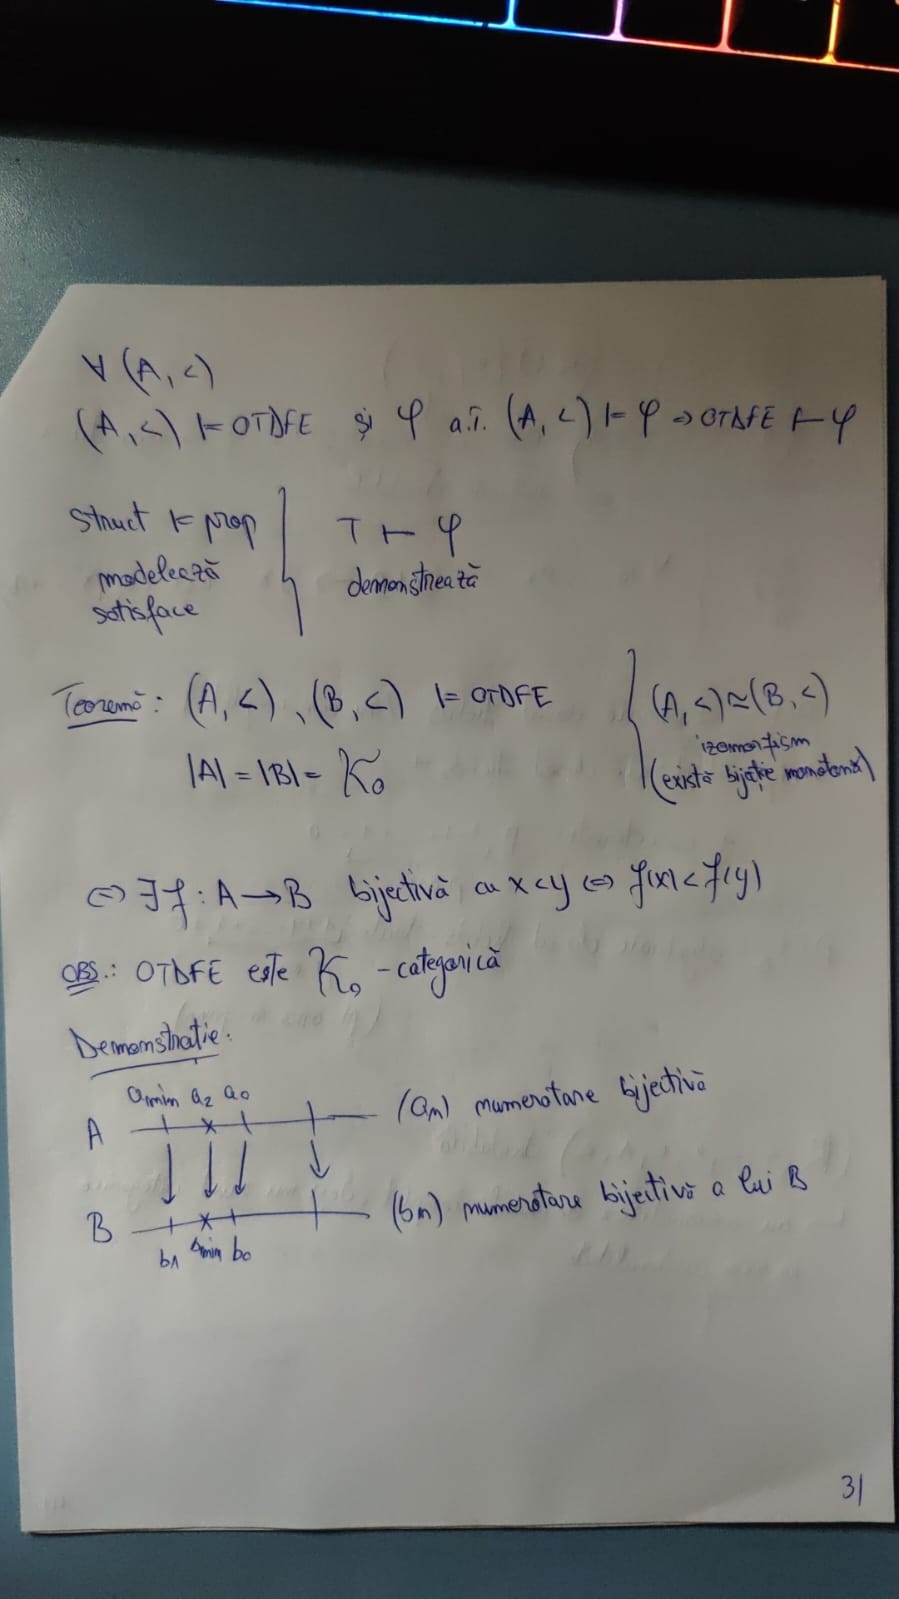 ∀ (A, <)
(A, <) ⊨ OTDFE și φ a.î. (A, <) ⊨ φ ⇒ OTDFE ⊢ φ
Struct ⊨ prop } T ⊢ φ
modelează demonstrează
satisface
Teoremă: (A, <), (B, <) ⊨ OTDFE } (A, <) ≃ (B, <)
izomorfism
|A| = |B| = ℵ₀ (există bijecție monotonă)
⇔ ∃ f : A → B bijectivă cu x < y ⇔ f(x) < f(y)
OBS.: OTDFE este ℵ₀ - categorică
Demonstratie.
amin a₂ a₀
A (an) numerotare bijectivă
B (bn) numerotare bijectivă a lui B
b₁ bmin b₀
31